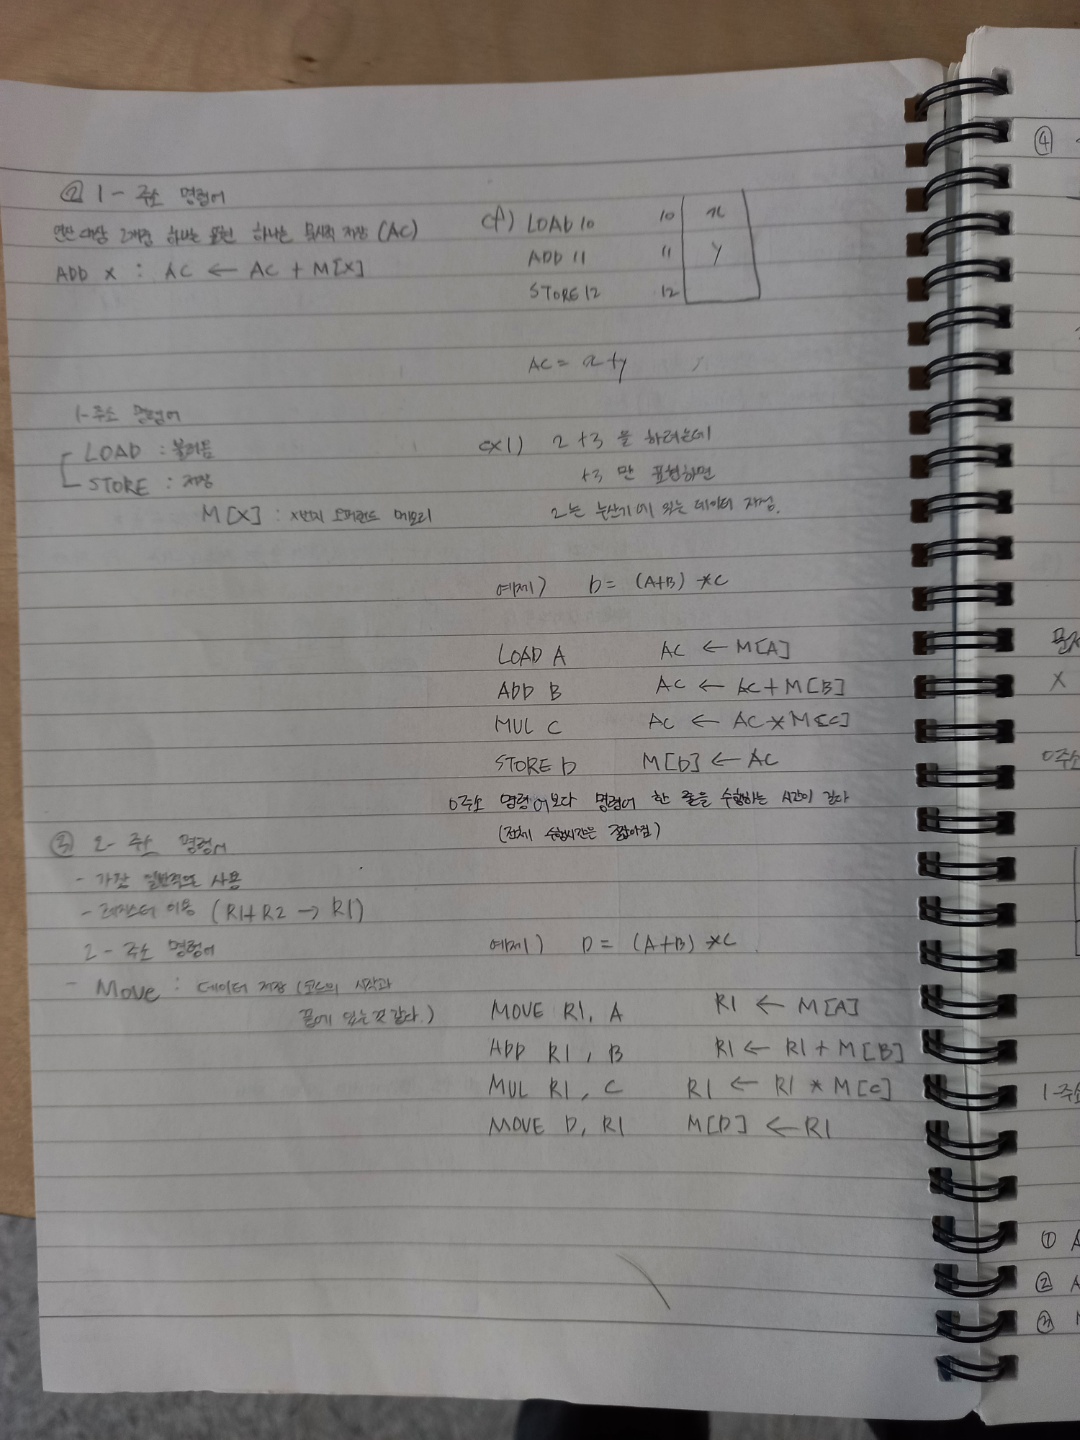 ② 1- 주소 명령어
연산 대상 2개중 하나는 표현 하나는 묵시적 지정 (AC)
ADD X : AC ← AC + M[X]
cf) LOAD 10
ADD 11
STORE 12
10 x
11 y
12
AC = x+y
1-주소 명령어
LOAD : 불러옴
STORE : 저장
M[X] : X번지 오퍼랜드 메모리
ex1) 2 +3 을 하려는데
+3 만 표현하면
2는 누산기에 있는 데이터 지정.
예제) D= (A+B) *C
LOAD A AC ← M[A]
ADD B AC ← AC + M[B]
MUL C AC ← AC * M[C]
STORE D M[D] ← AC
0주소 명령어보다 명령어 한 줄을 수행하는 시간이 길다
(전체 수행시간은 짧아짐)
③ 2- 주소 명령어
- 가장 일반적으로 사용
- 레지스터 이용 (R1+R2 → R1)
2- 주소 명령어
- Move : 데이터 저장 (코드의 시작과
끝에 있는것 같다.)
예제) D= (A+B) *C
MOVE R1, A R1 ← M[A]
ADD R1, B R1 ← R1 + M[B]
MUL R1, C R1 ← R1 * M[C]
MOVE D, R1 M[D] ← R1
④
X
0주소
1-주소
① A
②
③